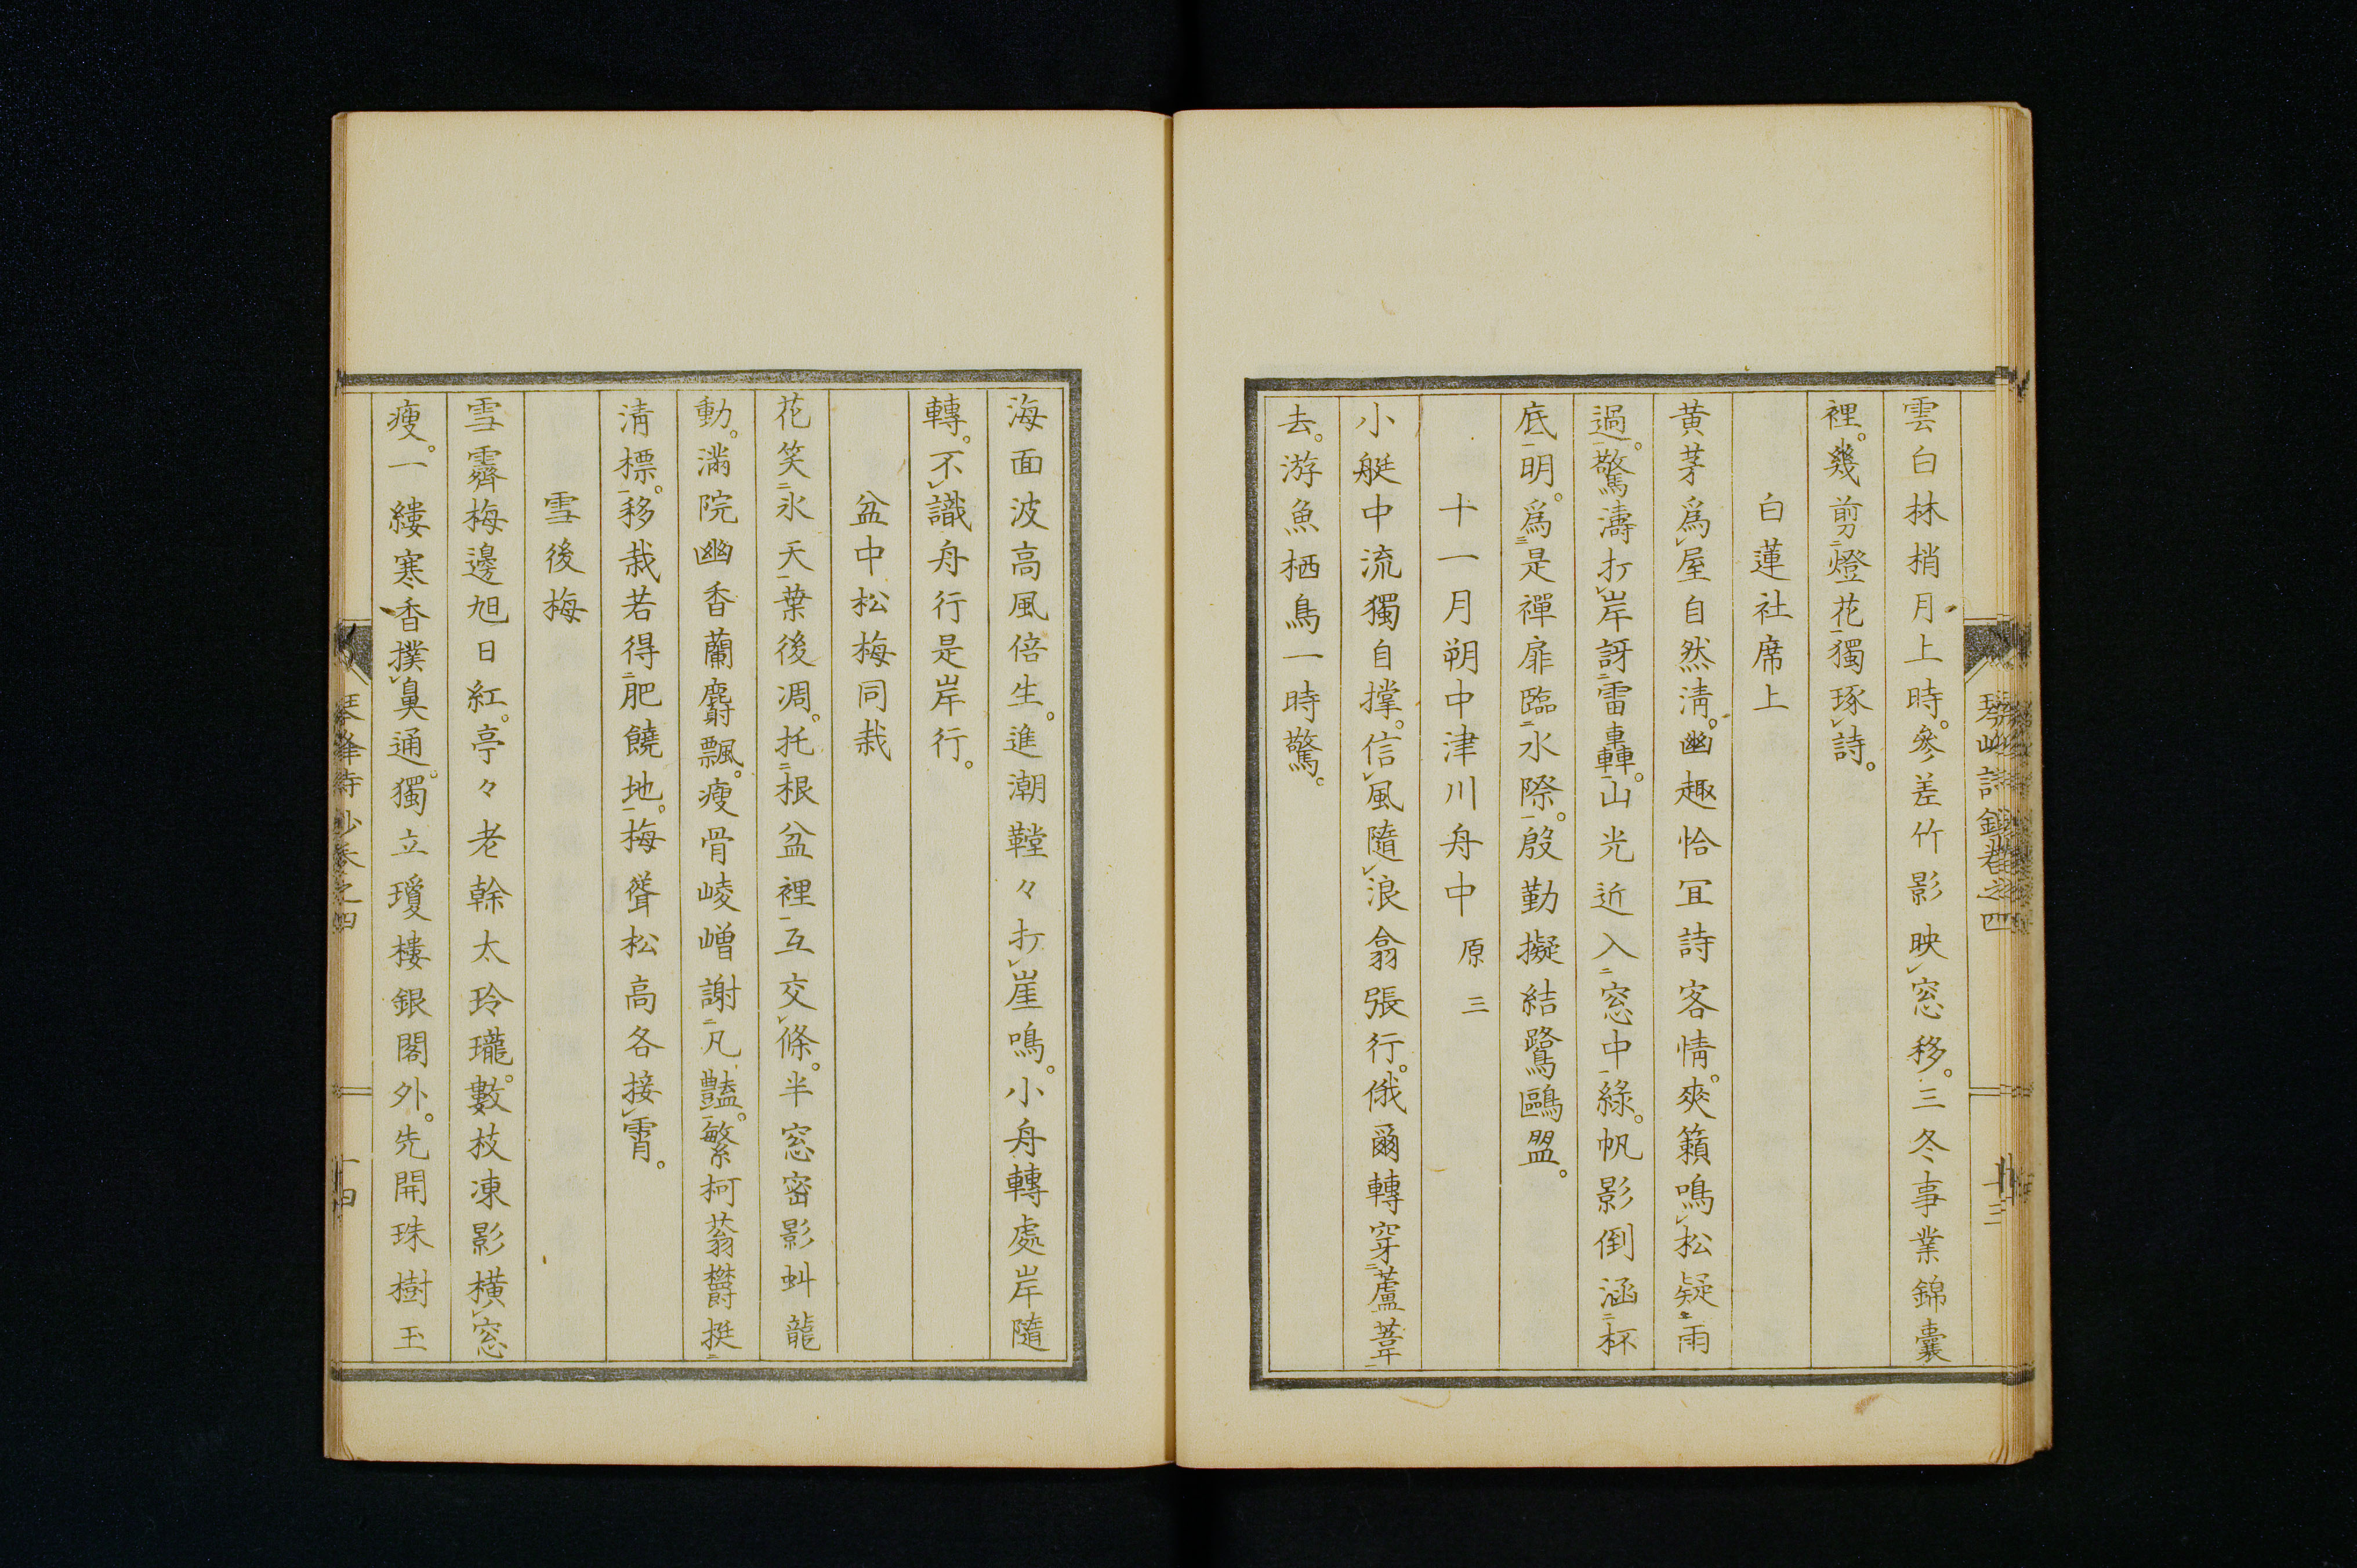 雲白林梢月上時。參差竹影映㆑窓移。三冬事業錦囊
裡。幾剪㆓燈花㆒獨琢㆑詩。
白蓮社席上
黄茅爲㆑屋自然淸。幽趣恰冝詩客情。爽籟鳴㆑松疑㆓雨
過㆒。驚濤打㆑岸訝㆓雷車轟㆒。山光近入㆓窓中㆒綠。帆影倒涵㆓杯
底㆒明。爲㆔是禪扉臨㆓水際㆒。殷勤擬結鷺鷗盟。
十一月朔中津川舟中 原三
小艇中流獨自撑。信㆑風隨㆑浪翕張行。俄爾轉穿㆓蘆葦㆒
去。游魚栖鳥一時驚。
琴峰詩鈔卷之四
十三
海面波高風倍生。進潮鞺々打㆑崖鳴。小舟轉處岸隨
轉。不㆑識舟行是岸行。
盆中松梅同栽
花笑㆓氷天㆒葉後凋。托㆓根盆裡㆒互交㆑條。半窓密影虯龍
動。滿院幽香蘭麝飄。瘦骨崚嶒謝㆓凡豔㆒。繁柯蓊欝挺㆓
淸標㆒。移栽若得㆓肥饒地㆒。梅聳松高各接㆑霄。
雪後梅
雪霽梅邊旭日紅。亭々老幹太玲瓏。數枝凍影橫㆑窓
瘦。一縷寒香撲㆑鼻通。獨立瓊樓銀閣外。先開珠樹玉
琴峰詩鈔卷之四
十四